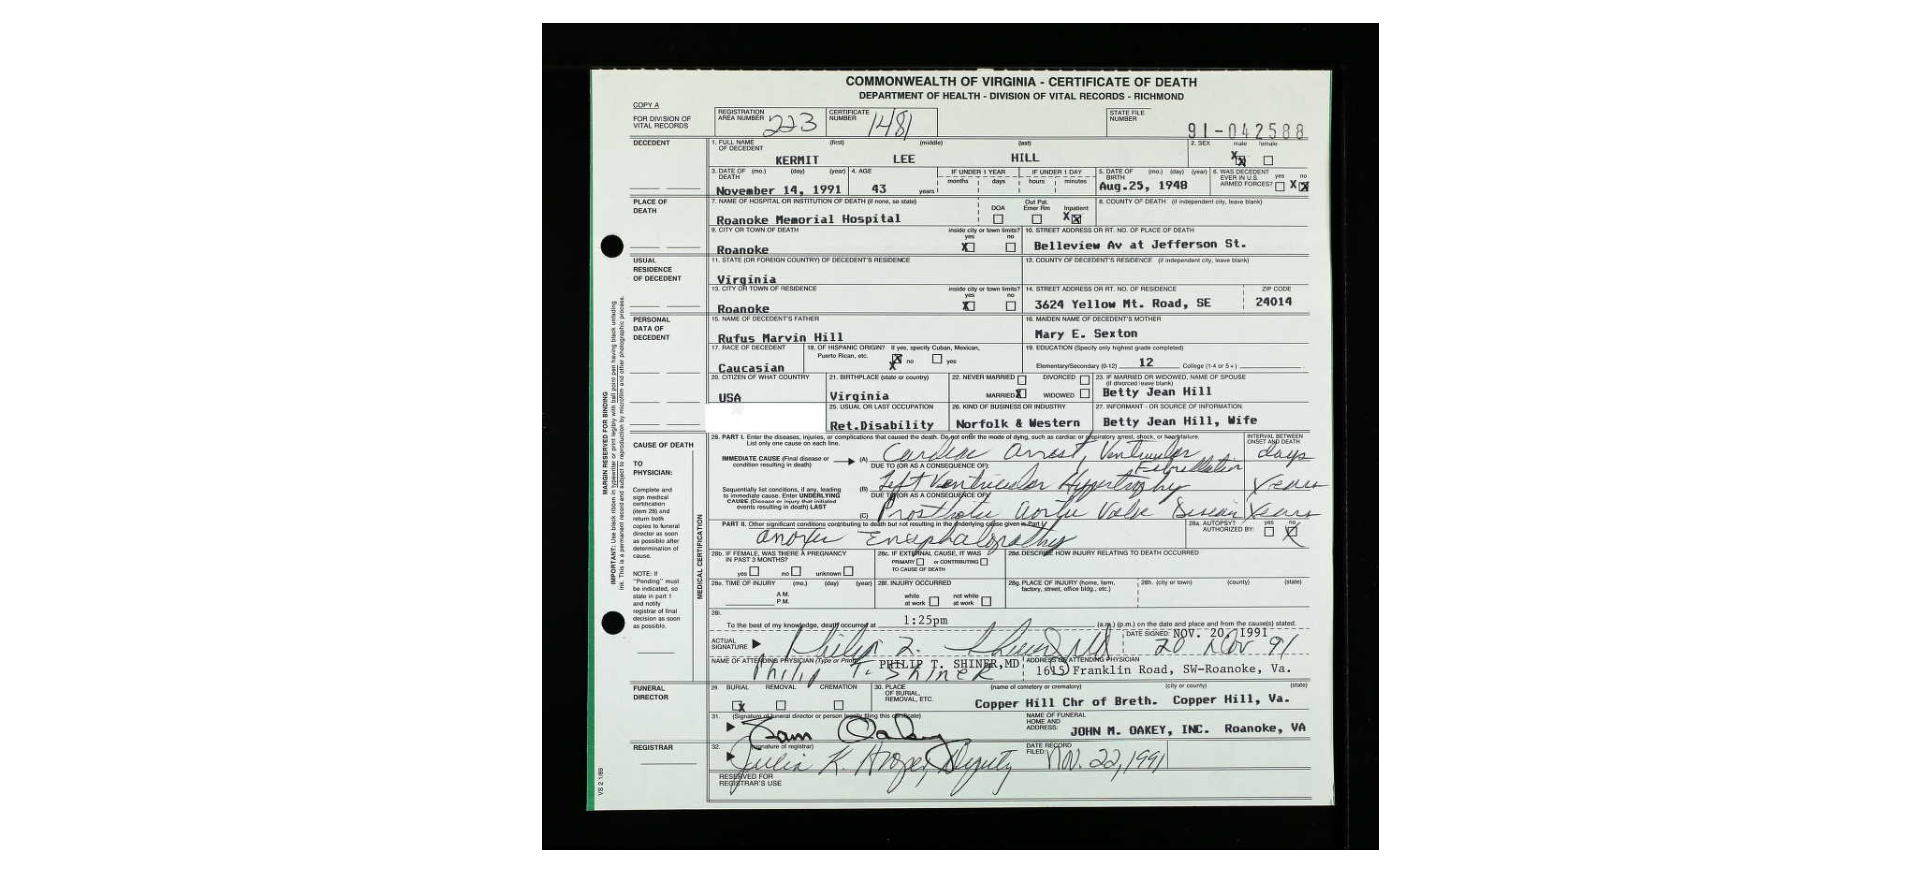 COMMONWEALTH OF VIRGINIA - CERTIFICATE OF DEATH
DEPARTMENT OF HEALTH - DIVISION OF VITAL RECORDS - RICHMOND
COPY A
FOR DIVISION OF VITAL RECORDS
REGISTRATION AREA NUMBER 223
CERTIFICATE NUMBER 1481
STATE FILE NUMBER 91-042588
DECEDENT
1. FULL NAME OF DECEDENT (first) (middle) (last)
KERMIT LEE HILL
2. SEX male female
X
3. DATE OF DEATH (mo.) (day) (year)
November 14, 1991
4. AGE
43 years
IF UNDER 1 YEAR months days
IF UNDER 1 DAY hours minutes
5. DATE OF BIRTH (mo.) (day) (year)
Aug.25, 1948
6. WAS DECEDENT EVER IN U.S. ARMED FORCES? yes no
X
PLACE OF DEATH
7. NAME OF HOSPITAL OR INSTITUTION OF DEATH (if none, so state)
Roanoke Memorial Hospital
DOA Out Pat. Emer Rm Inpatient
X
8. COUNTY OF DEATH (if independent city, leave blank)
9. CITY OR TOWN OF DEATH
Roanoke
inside city or town limits? yes no
X
10. STREET ADDRESS OR RT. NO. OF PLACE OF DEATH
Belleview Av at Jefferson St.
USUAL RESIDENCE OF DECEDENT
11. STATE (OR FOREIGN COUNTRY) OF DECEDENT'S RESIDENCE
Virginia
12. COUNTY OF DECEDENT'S RESIDENCE (if independent city, leave blank)
13. CITY OR TOWN OF RESIDENCE
Roanoke
inside city or town limits? yes no
X
14. STREET ADDRESS OR RT. NO. OF RESIDENCE
3624 Yellow Mt. Road, SE
ZIP CODE
24014
PERSONAL DATA OF DECEDENT
15. NAME OF DECEDENT'S FATHER
Rufus Marvin Hill
16. MAIDEN NAME OF DECEDENT'S MOTHER
Mary E. Sexton
17. RACE OF DECEDENT
Caucasian
18. OF HISPANIC ORIGIN? If yes, specify Cuban, Mexican, Puerto Rican, etc.
X no yes
19. EDUCATION (Specify only highest grade completed)
Elementary/Secondary (0-12) 12 College (1-4 or 5+)
20. CITIZEN OF WHAT COUNTRY
USA
21. BIRTHPLACE (state or country)
Virginia
22. NEVER MARRIED DIVORCED
MARRIED X WIDOWED
23. IF MARRIED OR WIDOWED, NAME OF SPOUSE (if divorced leave blank)
Betty Jean Hill
25. USUAL OR LAST OCCUPATION
Ret.Disability
26. KIND OF BUSINESS OR INDUSTRY
Norfolk & Western
27. INFORMANT - OR SOURCE OF INFORMATION
Betty Jean Hill, Wife
CAUSE OF DEATH
TO PHYSICIAN:
Complete and sign medical certification (item 28) and return both copies to funeral director as soon as possible after determination of cause.
NOTE: If "Pending" must be indicated, so state in part I and notify registrar of final decision as soon as possible.
MEDICAL CERTIFICATION
28. PART I. Enter the diseases, injuries, or complications that caused the death. Do not enter the mode of dying, such as cardiac or respiratory arrest, shock, or heart failure.
List only one cause on each line.
INTERVAL BETWEEN ONSET AND DEATH
IMMEDIATE CAUSE (Final disease or condition resulting in death)
(A) Cardiac arrest, Ventricular Fibrillation days
DUE TO (OR AS A CONSEQUENCE OF):
Sequentially list conditions, if any, leading to immediate cause. Enter UNDERLYING CAUSE (Disease or injury that initiated events resulting in death) LAST
(B) Left Ventricular Hypertrophy years
DUE TO (OR AS A CONSEQUENCE OF)
(C) Prosthetic Aortic Valve Disease Years
PART II. Other significant conditions contributing to death but not resulting in the underlying cause given in Part I
Anoxic Encephalopathy
28a. AUTOPSY? AUTHORIZED BY: yes no
X
28b. IF FEMALE, WAS THERE A PREGNANCY IN PAST 3 MONTHS?
yes no unknown
28c. IF EXTERNAL CAUSE, IT WAS
PRIMARY or CONTRIBUTING
TO CAUSE OF DEATH
28d. DESCRIBE HOW INJURY RELATING TO DEATH OCCURRED
28e. TIME OF INJURY (mo.) (day) (year)
A.M.
P.M.
28f. INJURY OCCURRED
while at work not while at work
28g. PLACE OF INJURY (home, farm, factory, street, office bldg., etc.)
28h. (city or town) (county) (state)
28i.
To the best of my knowledge, death occurred at 1:25pm (a.m.) (p.m.) on the date and place and from the cause(s) stated.
ACTUAL SIGNATURE Philip T. Shiner MD
DATE SIGNED: NOV. 20, 1991
20 Nov 91
NAME OF ATTENDING PHYSICIAN (Type or Print)
PHILIP T. SHINER,MD
Philip T. Shiner
ADDRESS OF ATTENDING PHYSICIAN
1615 Franklin Road, SW-Roanoke, Va.
FUNERAL DIRECTOR
29. BURIAL REMOVAL CREMATION
X
30. PLACE OF BURIAL, REMOVAL, ETC.
(name of cemetery or crematory) (city or county) (state)
Copper Hill Chr of Breth. Copper Hill, Va.
31. (Signature of funeral director or person legally filing this certificate)
Sam Oakey
NAME OF FUNERAL HOME AND ADDRESS:
JOHN M. OAKEY, INC. Roanoke, VA
REGISTRAR
32. (signature of registrar)
Julia K. Deputy
DATE RECORD FILED: Nov. 22, 1991
RESERVED FOR REGISTRAR'S USE
MARGIN RESERVED FOR BINDING
IMPORTANT: Use black ribbon in typewriter or print legibly with ball point pen having black unfading ink. This is a permanent record and subject to reproduction by microfilm and other photographic process.
VS 2 1/89